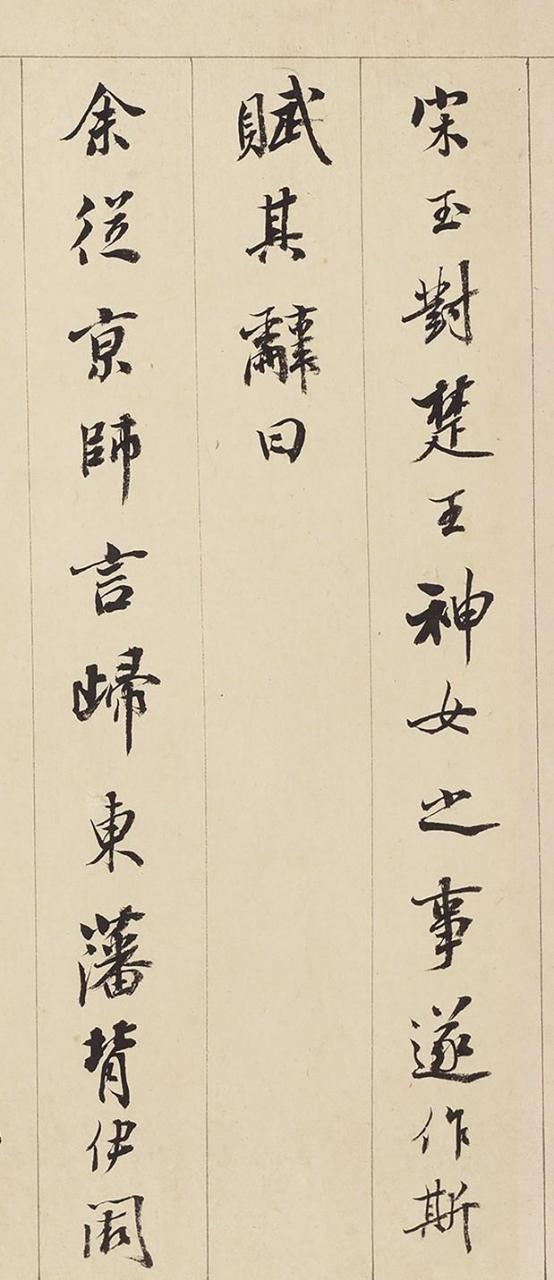 宋玉對楚王神女之事遂作斯
賦其辭曰
余從京師言歸東藩背伊闕